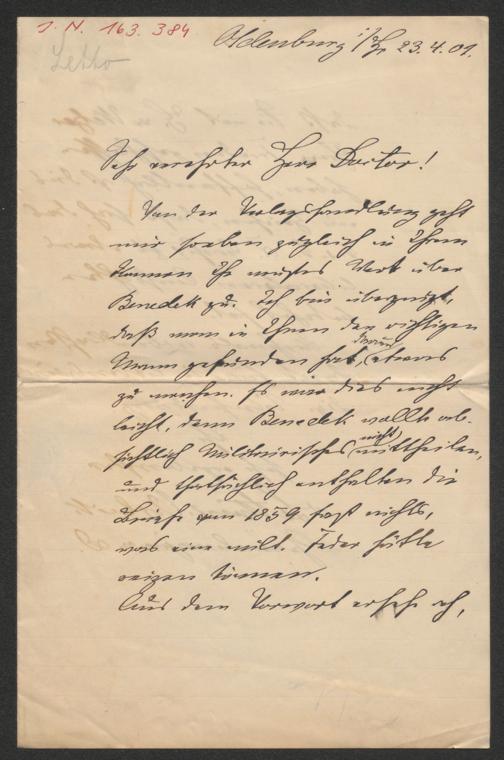 J. N. 163.384
Oldenburg i/Gr 23.4.01.
Sehr verehrter Herr Doctor!
Von der Verlagshandlung geht
mir soeben zugleich in Ihrem
Namen Ihr neustes Werk über
Benedek zu. Ich bin überzeugt,
daß man in Ihnen den richtigen
Mann gefunden hat, daraus etwas
zu machen. Es war dies nicht
leicht, denn Benedek wollte ab-
sichtlich Militairisches nicht mittheilen,
und thatsächlich enthalten die
Briefe von 1859 fast nichts,
was eine milit. Feder hätte
reizen können.
Aus dem Vorwort ersehe ich,